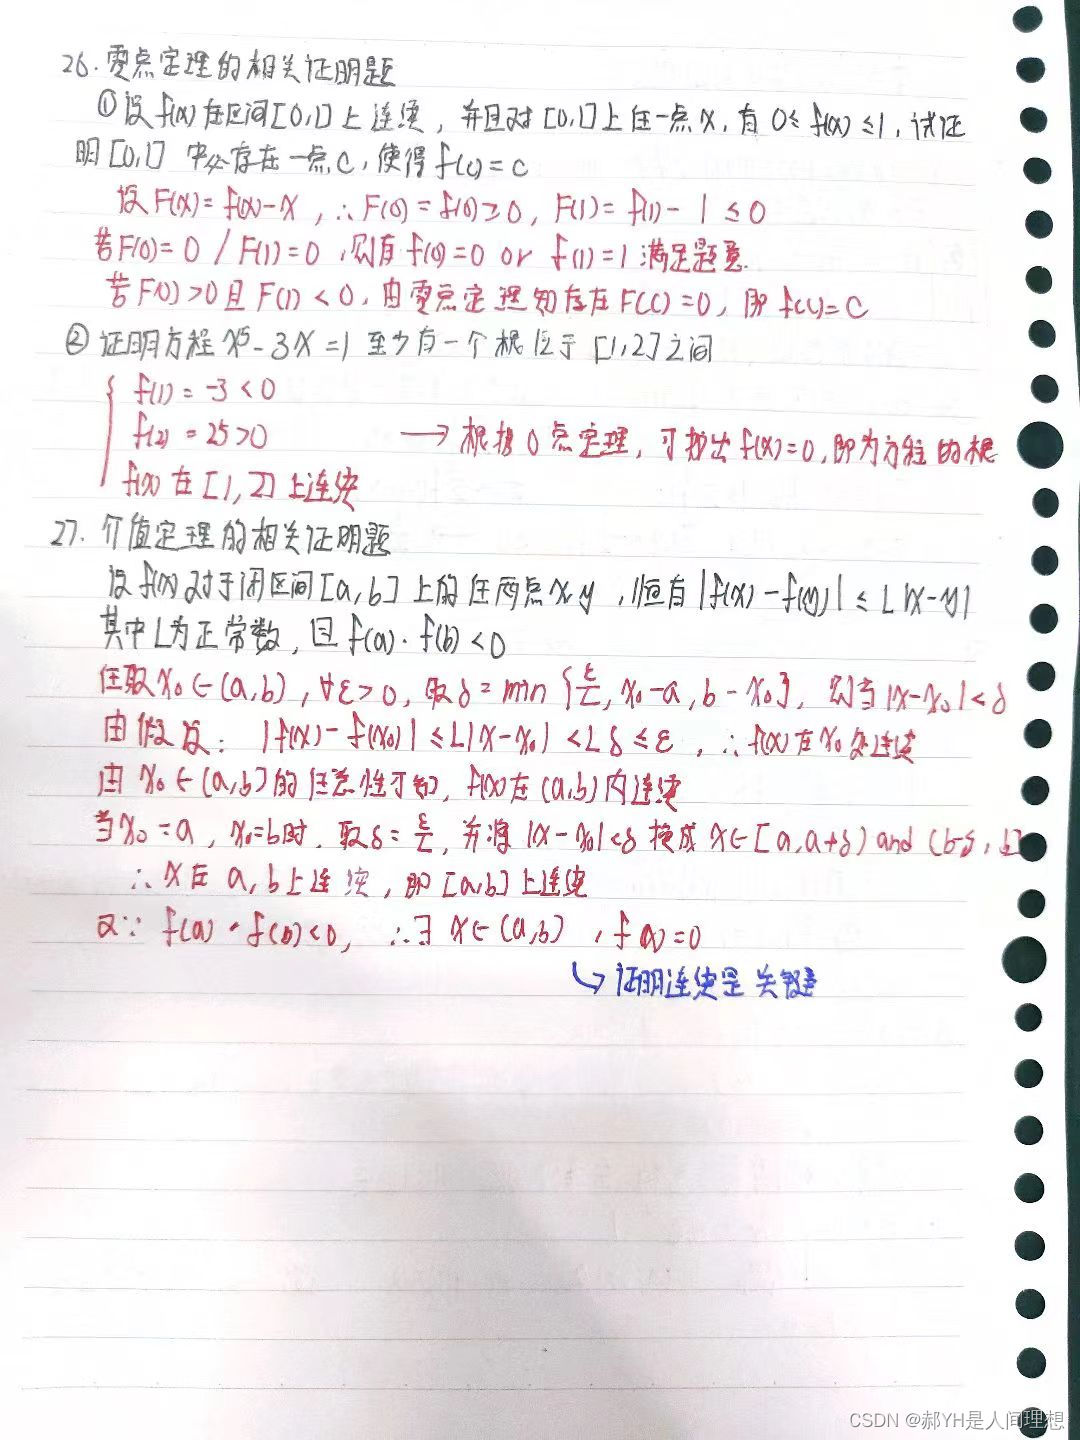 26. 零点定理的相关证明题
① 设 f(x) 在区间[0,1]上连续，并且对[0,1]上任一点x，有 0≤f(x)≤1，试证
明[0,1] 中必存在一点c，使得 f(c)=c
设F(x)=f(x)-x，∴F(0)=f(0)≥0，F(1)=f(1)-1≤0
若F(0)=0 / F(1)=0，则有 f(0)=0 or f(1)=1 满足题意.
若F(0)>0且F(1)<0，由零点定理知存在F(C)=0，即f(c)=C
② 证明方程 x⁵-3x=1 至少有一个根位于 [1,2]之间
f(1)=-3<0
f(2)=25>0 → 根据0点定理，可找出f(x)=0，即为方程的根
f(x)在[1,2]上连续
27. 介值定理的相关证明题
设f(x)对于闭区间[a,b]上的任两点x,y，恒有|f(x)-f(y)|≤L|x-y|
其中L为正常数，且 f(a)·f(b)<0
任取x₀∈(a,b)，∀ε>0，取δ=min{ε/L, x₀-a, b-x₀}，则当|x-x₀|<δ
由假设：|f(x)-f(x₀)|≤L|x-x₀|<Lδ≤ε，∴f(x)在x₀处连续
由x₀∈(a,b)的任意性可知，f(x)在(a,b)内连续
当x₀=a，x₀=b时，取δ=ε/L，并将|x-x₀|<δ换成x∈[a,a+δ) and (b-δ,b]
∴x在a,b上连续，即[a,b]上连续
又∵ f(a)·f(b)<0，∴∃ x∈(a,b)，f(x)=0
↳ 证明连续是关键
CSDN @郝YH是人间理想